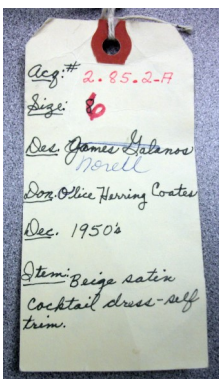 Acq:# 2.85.2-A
Size: 6
Des. James Galanos
Norell
Don. Ollice Herring Coates
Dec. 1950's
Item: Beige satin
cocktail dress-self
trim.